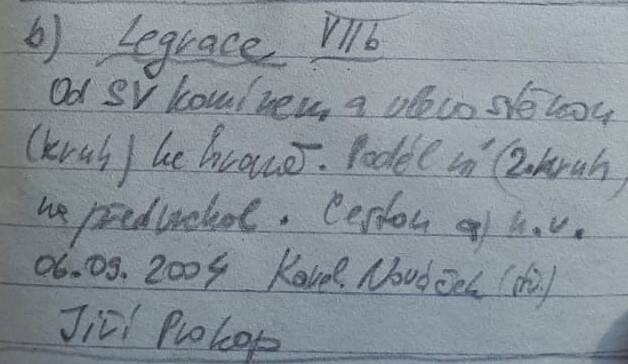 b) Legrace VIIb
Od SV komínem a vlevo stěnou
(kruh) ke hraně. Podél ní (2.kruh)
na předvrchol. Cestou a) n.v.
06.09.2004 Karel Nováček
Jiří Prokop